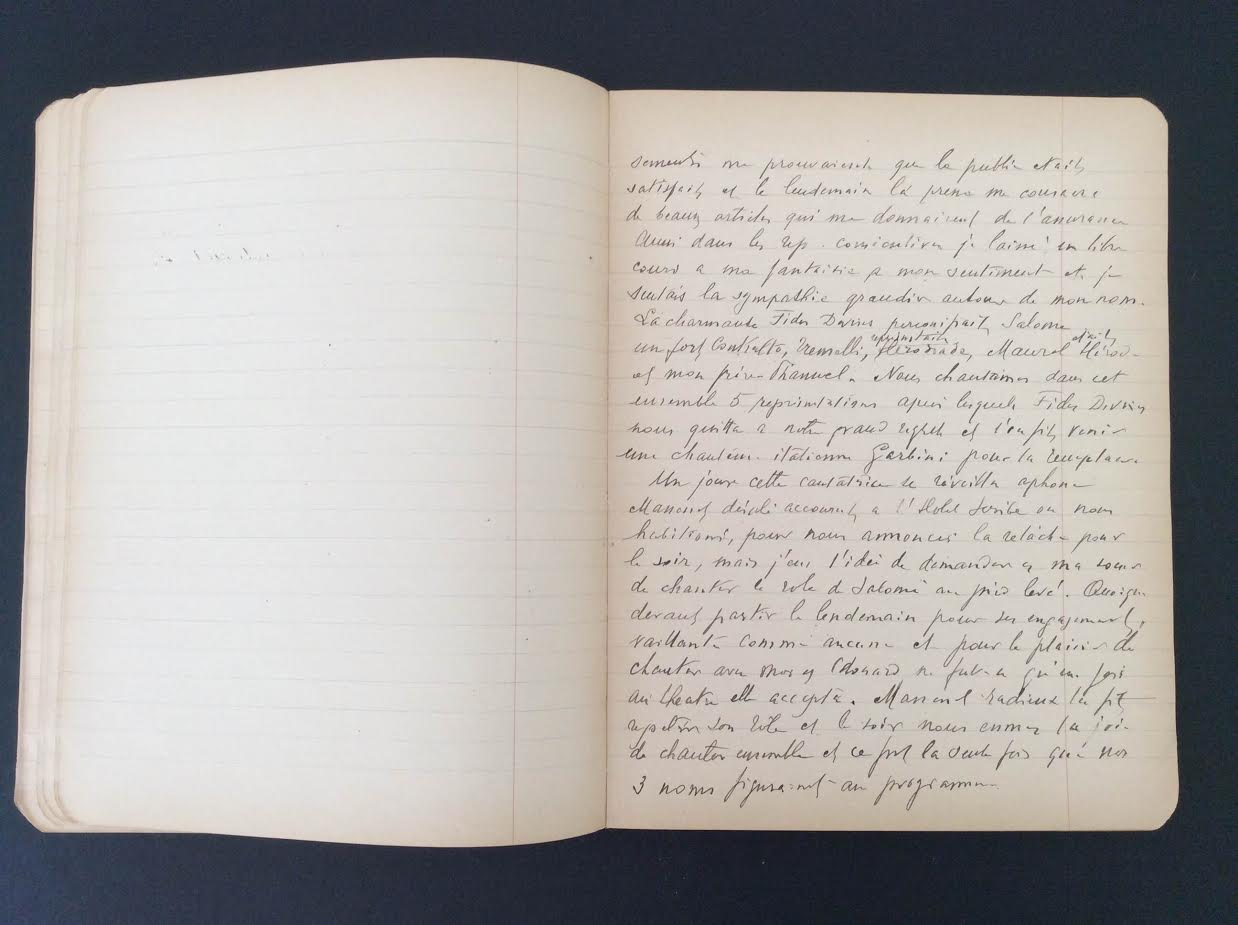 sements me prouvaient que le public était
satisfait et le lendemain la presse me consacre
de beaux articles qui me donnairent de l'assurance
Aussi dans les rep. consécutives je laissé un libre
cours a ma fantaisie a mon sentiment et je
sentais la sympathie grandir autour de mon nom.
La charmante Fidès Devries personifiait Salomé
un fort Contralto, Tremelli, représentait Hérodiade, Maurel était Hérode
et mon frère Phanuel. Nous chantâmes dans cet
ensemble 5 représentations après lesquels Fidès Devriès
nous quitta a notre grand regret et l'on fit venir
une chanteuse italienne Garbini pour la remplacer.
Un jour cette cantatrice se réveilla aphone
Massenet désolé accourut a l'Hotel Scribe ou nous
habitions, pour nous annoncer la relâche pour
le soir, mais j'eus l'idée de demander a ma soeur
de chanter le rôle de Salomé au pied levé. Quoique
devant partir le lendemain pour ses engagements,
vaillante comme aucune et pour le plaisir de
chanter avec moi et Edouard ne fut-ce qu'une fois
au théatre elle accepta. Massenet radieux la fit
repeter son rôle et le soir nous eumes la joie
de chanter ensemble et ce fut la seule fois que nos
3 noms figuraient au programme.